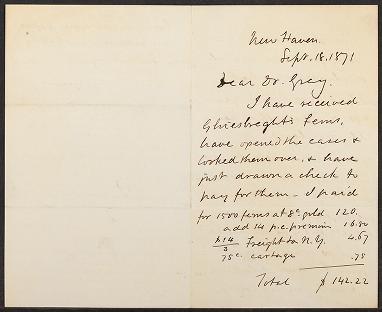 New Haven.
Sept. 18. 1871
Dear Dr. Gray.
I have received
Ghiesbreght's ferns,
have opened the cases &
looked them over, & have
just drawn a check to
pay for them - I paid
for 1500 ferns at 8c. gold 120.
add 14 p.c. premium 16.80
$14/3 Freight to N.Y. 4.67
75c. cartage .75
Total $142.22